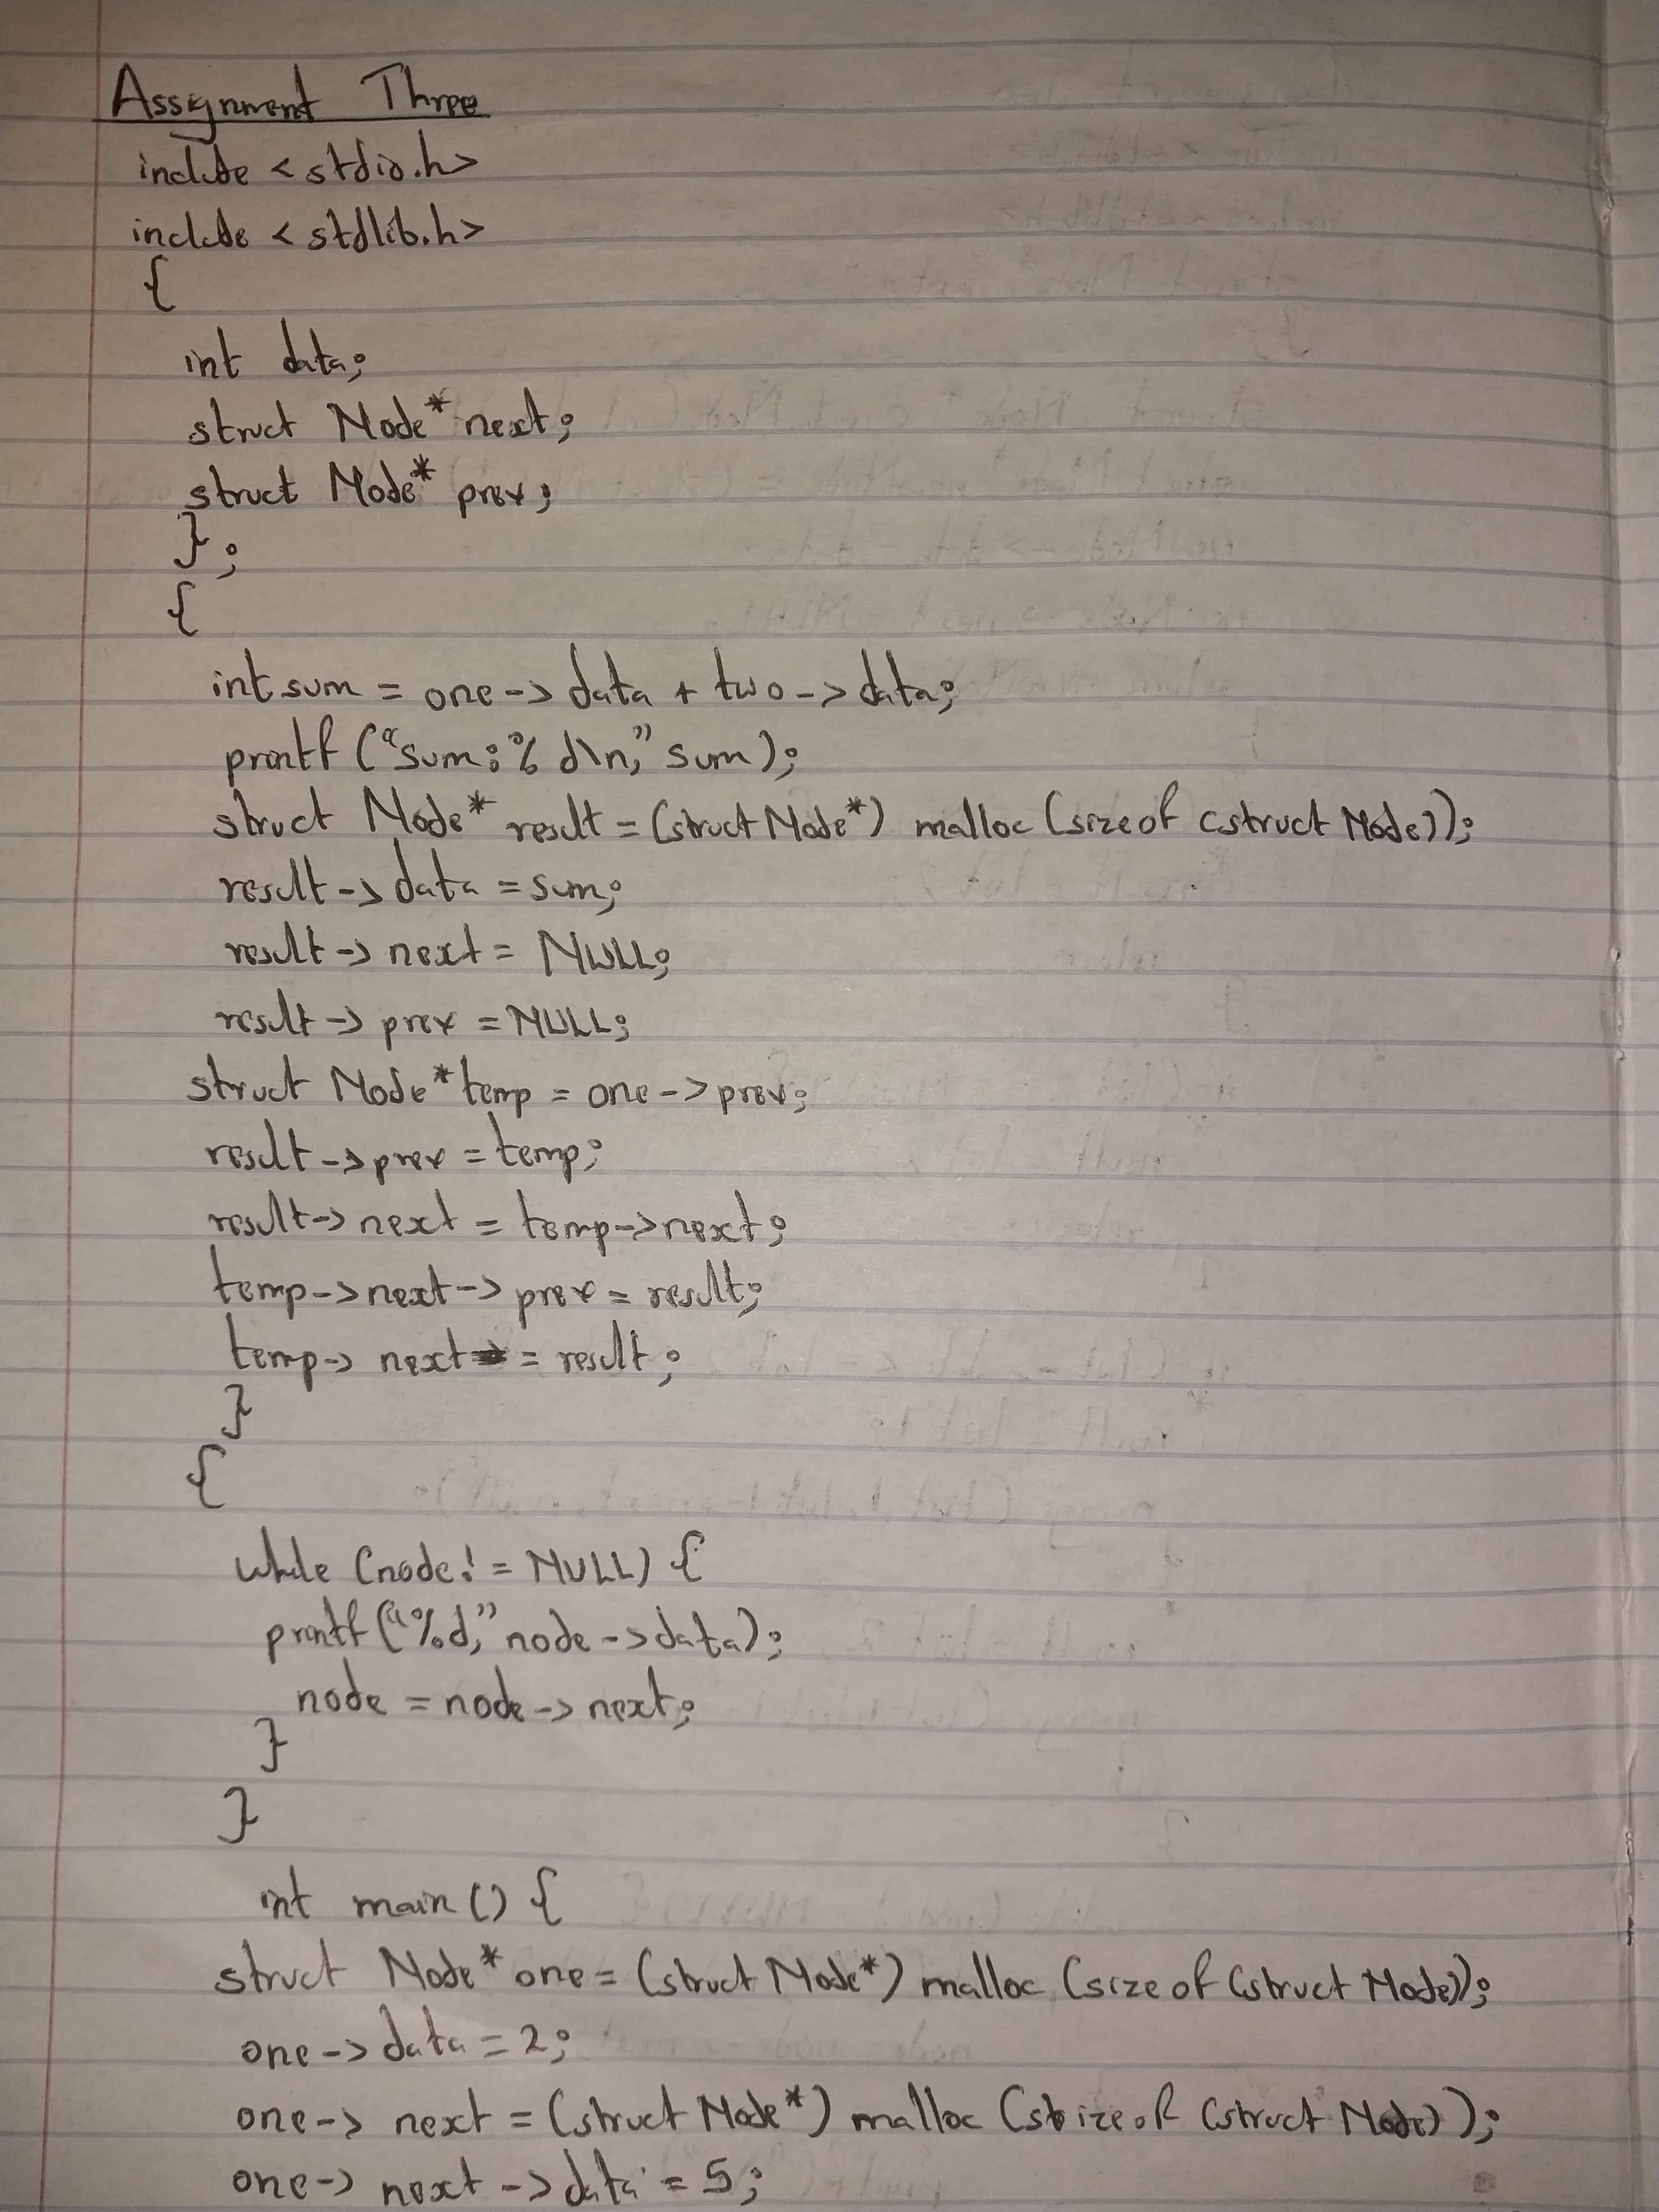 Assignment Three
include <stdio.h>
include <stdlib.h>
{
int data;
struct Node* next;
struct Node* prev;
};
{
int sum = one -> data + two -> data;
printf ("sum: % d\n," sum);
struct Node* result = (struct Node*) malloc (sizeof (struct Node));
result -> data = sum;
result -> next = NULL;
result -> prev = NULL;
struct Node* temp = one -> prev;
result -> prev = temp;
result -> next = temp -> next;
temp -> next -> prev = result;
temp -> next = result;
}
{
while (node! = NULL) {
printf ("%d," node -> data);
node = node -> next;
}
}
int main () {
struct Node* one = (struct Node*) malloc (size of (struct Node));
one -> data = 2;
one -> next = (struct Node*) malloc (size of (struct Node));
one -> next -> data = 5;